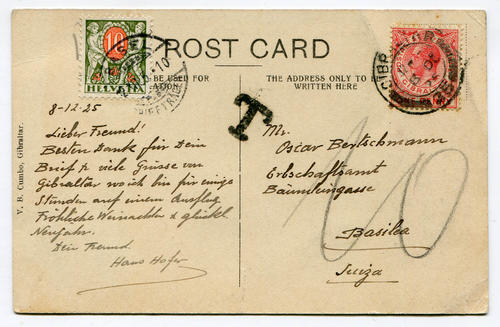 POST CARD
BE USED FOR
THE ADDRESS ONLY TO BE
WRITTEN HERE
10
HELVETIA
GIBRALTAR
T
8-12-25
Lieber Freund!
Besten Dank für Dein
Brief & viele Grüsse von
Gibraltar wo ich bin für einige
Stunden auf einem Ausflug
Fröhliche Weinachten & glückl
Neujahr.
Dein Freund.
Hans Hofer
Mr.
Oscar Bertschmann
Erbschaftsamt
Bäumleingasse
Basilea
Suiza
10
V. B. Cumbo, Gibraltar.